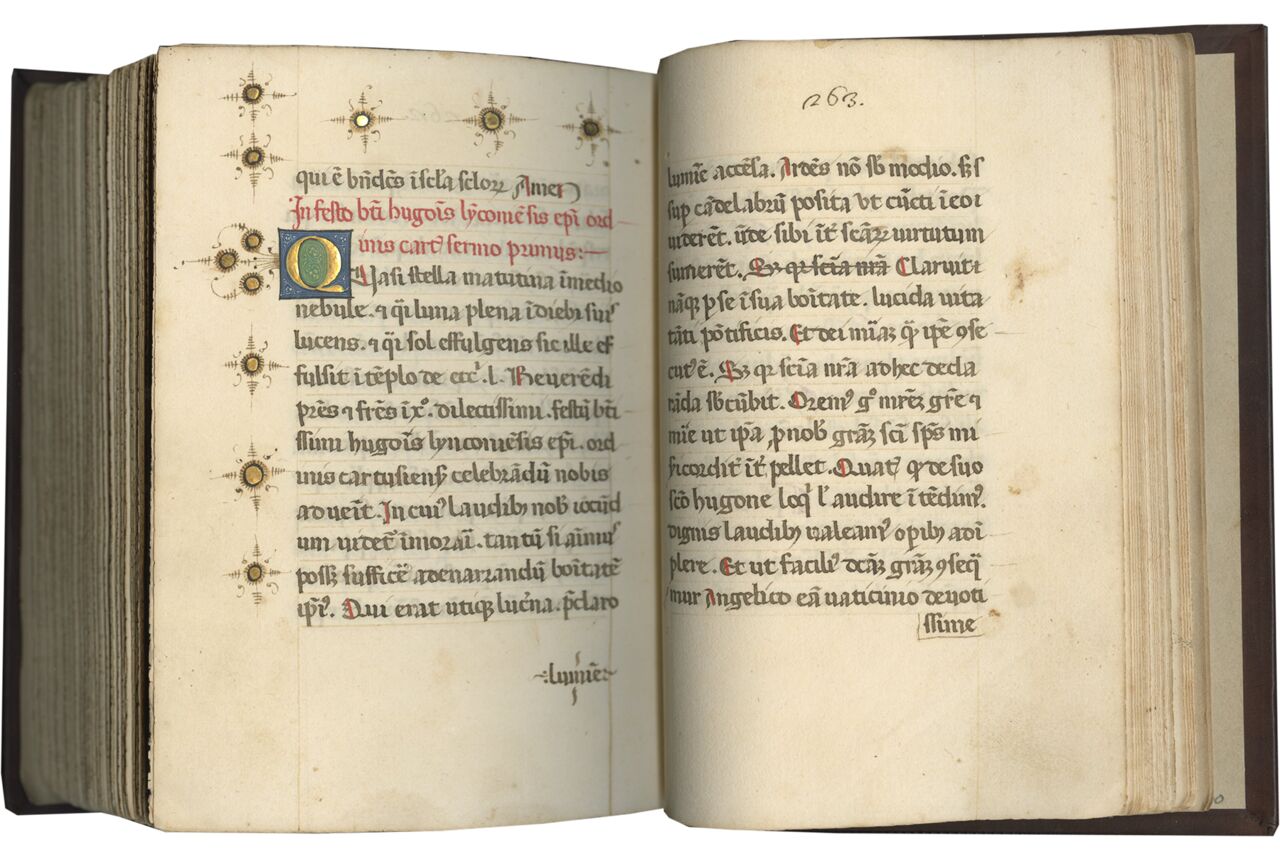 qui ē bn̄dcūs ī scl̄a sclorꝝ Amen
In festo btī hugoīs lȳconiēsis epī ord
inis cart' sermo primus:—
QVasi stella matutina ī medio
nebule. ⁊ qͣi luna plena ī diebꝫ suis
lucens. ⁊ qͣi sol effulgens sic ille ef
fulsit ī tēplo de etc̄. l. Reuerēdi
prēs ⁊ frēs ī xͦ. dilectissimi. festū btī
ssimi hugoīs lynconiēsis epī. ord
inis cartusiens̄ celebrādū nobis
aduēit. In cui' laudibꝫ nob̄ iocūd
um uidet' īmorari. tantū si aīmus
poss̄ sufficē adenarrandū boītatē
ip̄i'. Qui erat utiqꝫ lucn̄a. p̄claro
lumīe
263.
lumīe accēsa. Ardēs nō sb̄ modio. sꝫ s
sup cādelabrū posita vt cūcti ī eo i
uiderēt. ūde sibi īt̄ uirtutum
sumerēt. Sꝫ qꝛ sciā nrā Claruit
nāqꝫ ꝑ se ī sua boītate. lucida uita
tāti pōtificis. Et dei mīaꝫ ip̄e ꝯse
cut' ē. Sꝫ qꝛ sciā nrā adhec decla
rāda sb̄cūbit. Orem' gͦ mrēꝫ grē ⁊
mīe ut ip̄a ꝓ nob̄ grāꝫ scī sp̄s mi
sericordit' īt̄pellet. Quat' qͥ de suo
scō hugone loqͥ l' audire ītēdim'.
dignis laudibꝫ ualeam' opībꝫ adī
plere. Et ut facili' dcāꝫ grāꝫ ꝯseqͥ
mur Angelico eā uaticinio deuoti
ssime